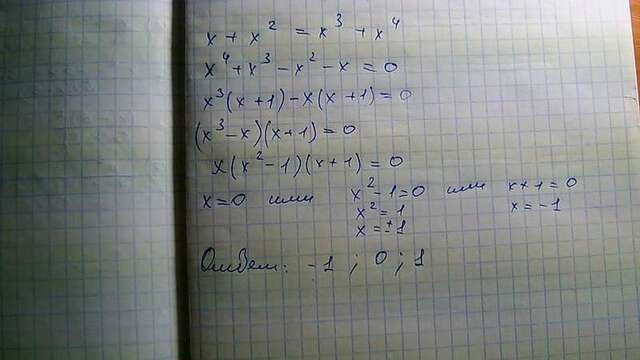 x + x² = x³ + x⁴
x⁴ + x³ - x² - x = 0
x³(x+1) - x(x+1) = 0
(x³ - x)(x+1) = 0
x(x² - 1)(x+1) = 0
x = 0 или x² - 1 = 0 или x + 1 = 0
x² = 1 x = -1
x = ±1
Ответ: -1 ; 0 ; 1